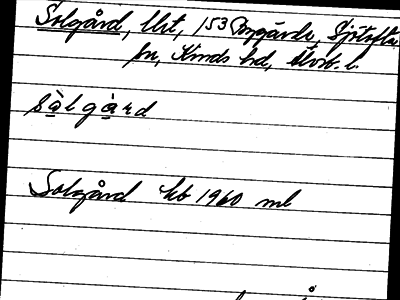 Solgård, lht, 153 Borgårde, Sjötofta
sn, Kinds hd, Älvsb. l.
sòlgàrd
Solgård kb 1960 ml